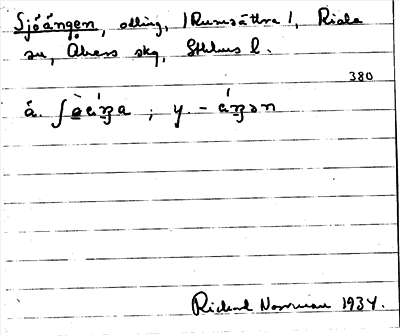 Sjöängen, odling, /Rumsättra/, Riala
sn, Åkers skg, Sthlms l.
380
ä. ; y. -
Richard Norrman 1934.